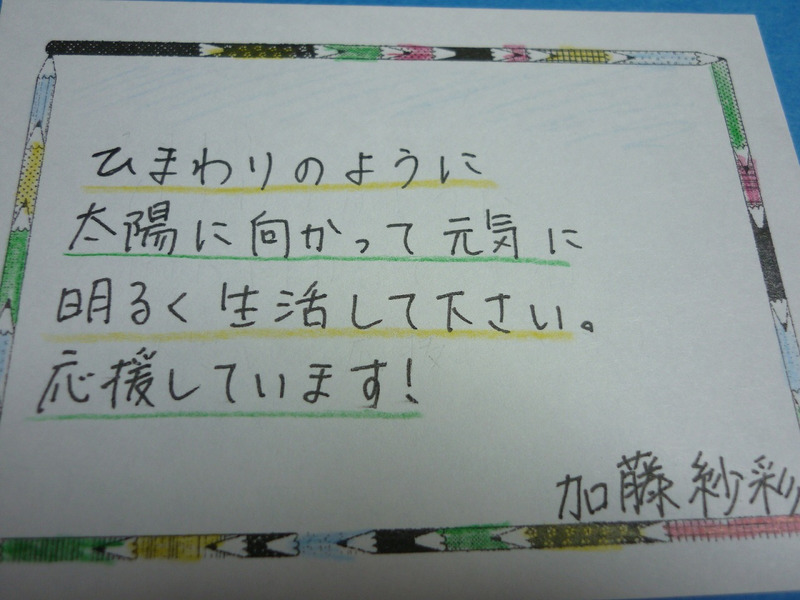 ひまわりのように
太陽に向かって元気に
明るく生活して下さい。
応援しています!
加藤紗彩